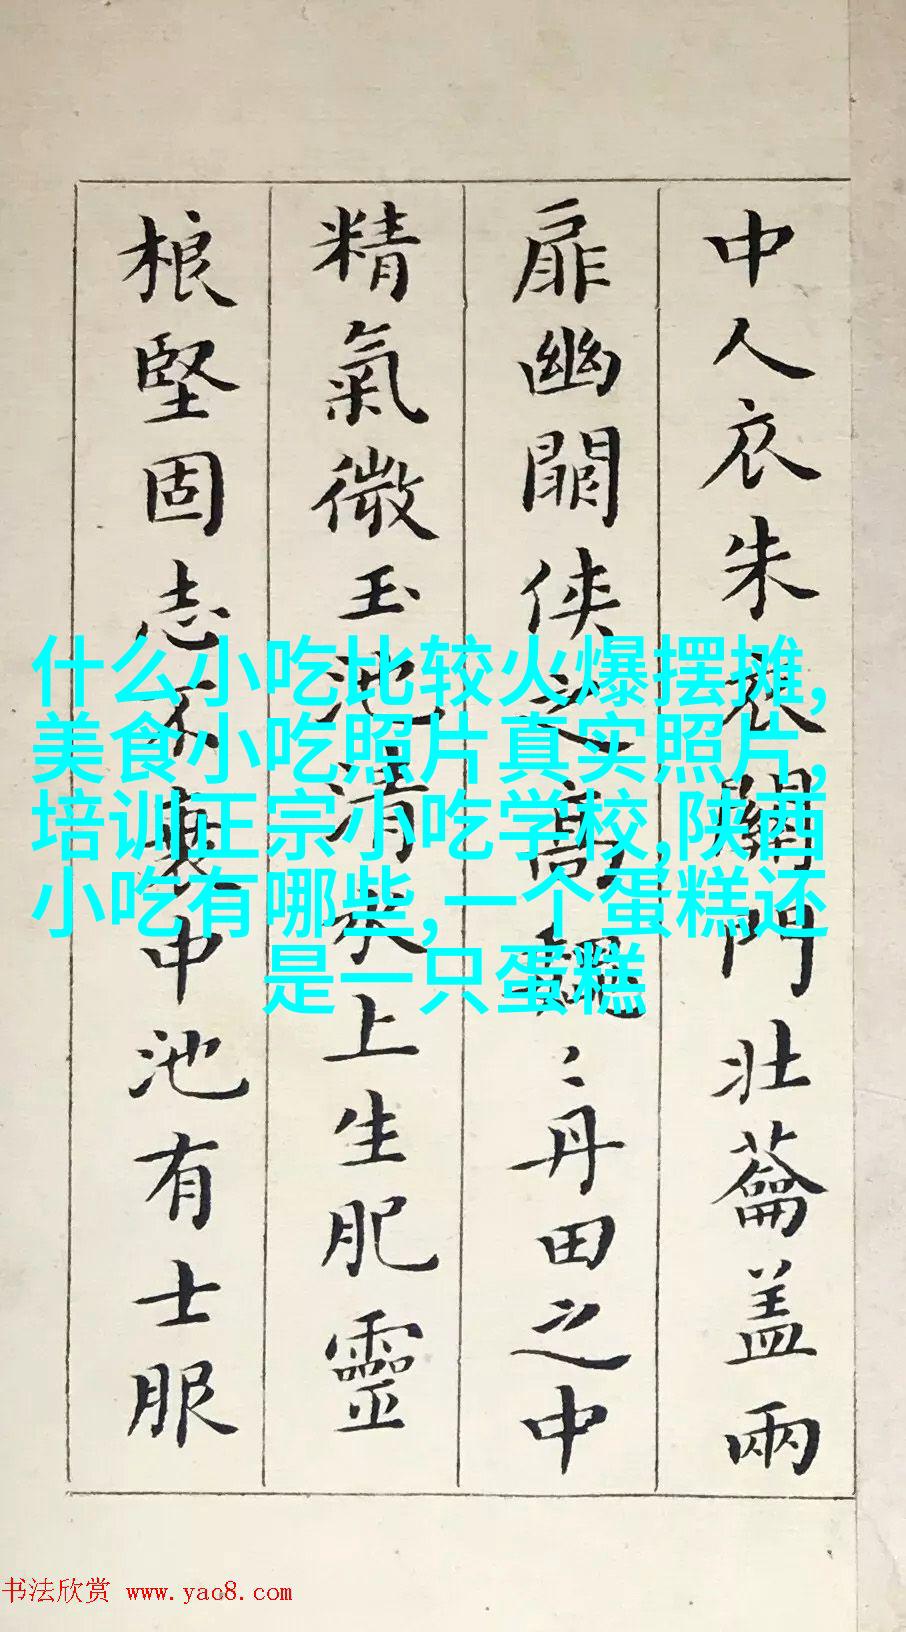 中人衣朱衣關門壯蘥盖兩
扉幽關侠之高巍〻丹田之中
精氣微玉池清水上生肥靈
根堅固志不衰中池有士服
什么小吃比较火爆摆摊,
美食小吃照片真实照片,
培训正宗小吃学校,陕西
小吃有哪些,一个蛋糕还
是一只蛋糕
书法欣赏 www.yac8.com